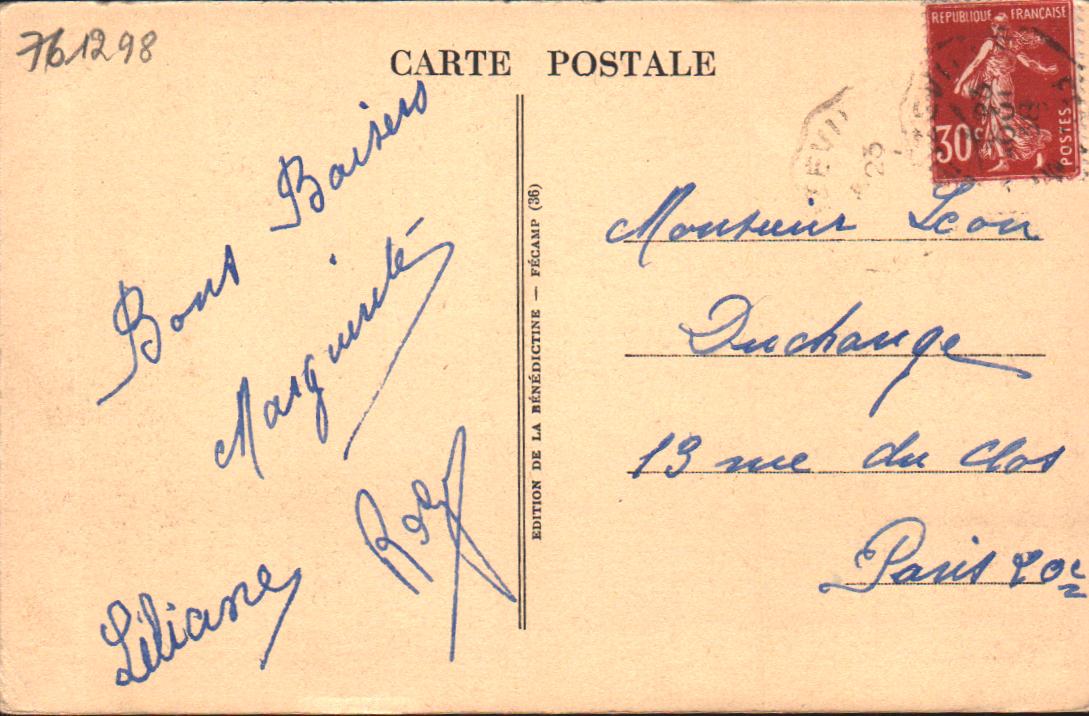 761298
CARTE POSTALE
REPUBLIQUE FRANÇAISE
30c
POSTES
25
Bons Baisers
Marguerite
Liliane
EDITION DE LA BÉNÉDICTINE — FÉCAMP (36)
Monsieur Léon
Duchange
13 rue du Clos
Paris 20e